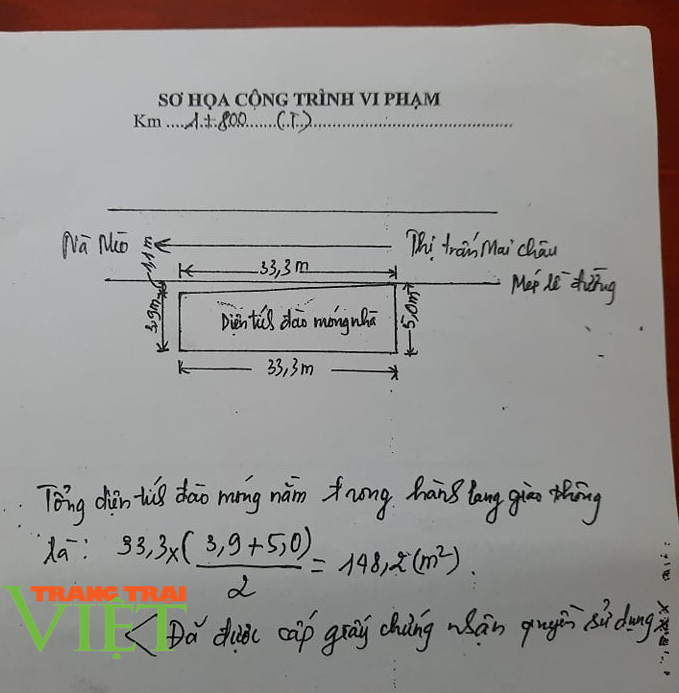 SƠ HỌA CÔNG TRÌNH VI PHẠM
Km ....1+800......(T)....
Nà Mèo
Thị trấn Mai Châu
1,1 m
33,3 m
Mép lề đường
3,9m
Diện tích đào móng nhà
5,0m
33,3 m
Tổng diện tích đào móng nằm trong hành lang giao thông
là: 33,3x(3,9+5,0)/2 = 148,2 (m²).
TRANG TRẠI
VIỆT
< Đã được cấp giấy chứng nhận quyền sử dụng